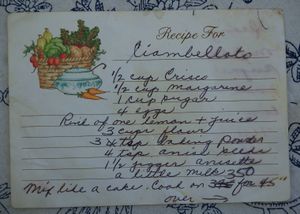 Recipe For
Ciambelloto
1/2 cup Crisco
1/2 cup Margarine
1 cup sugar
4 eggs
Rind of one lemon + juice
3 cups flour
3 tsp baking powder
4 tsp anise seeds
1/2 jigger anisette
a little milk 350
Mix like a cake. Cook on for 45"
over